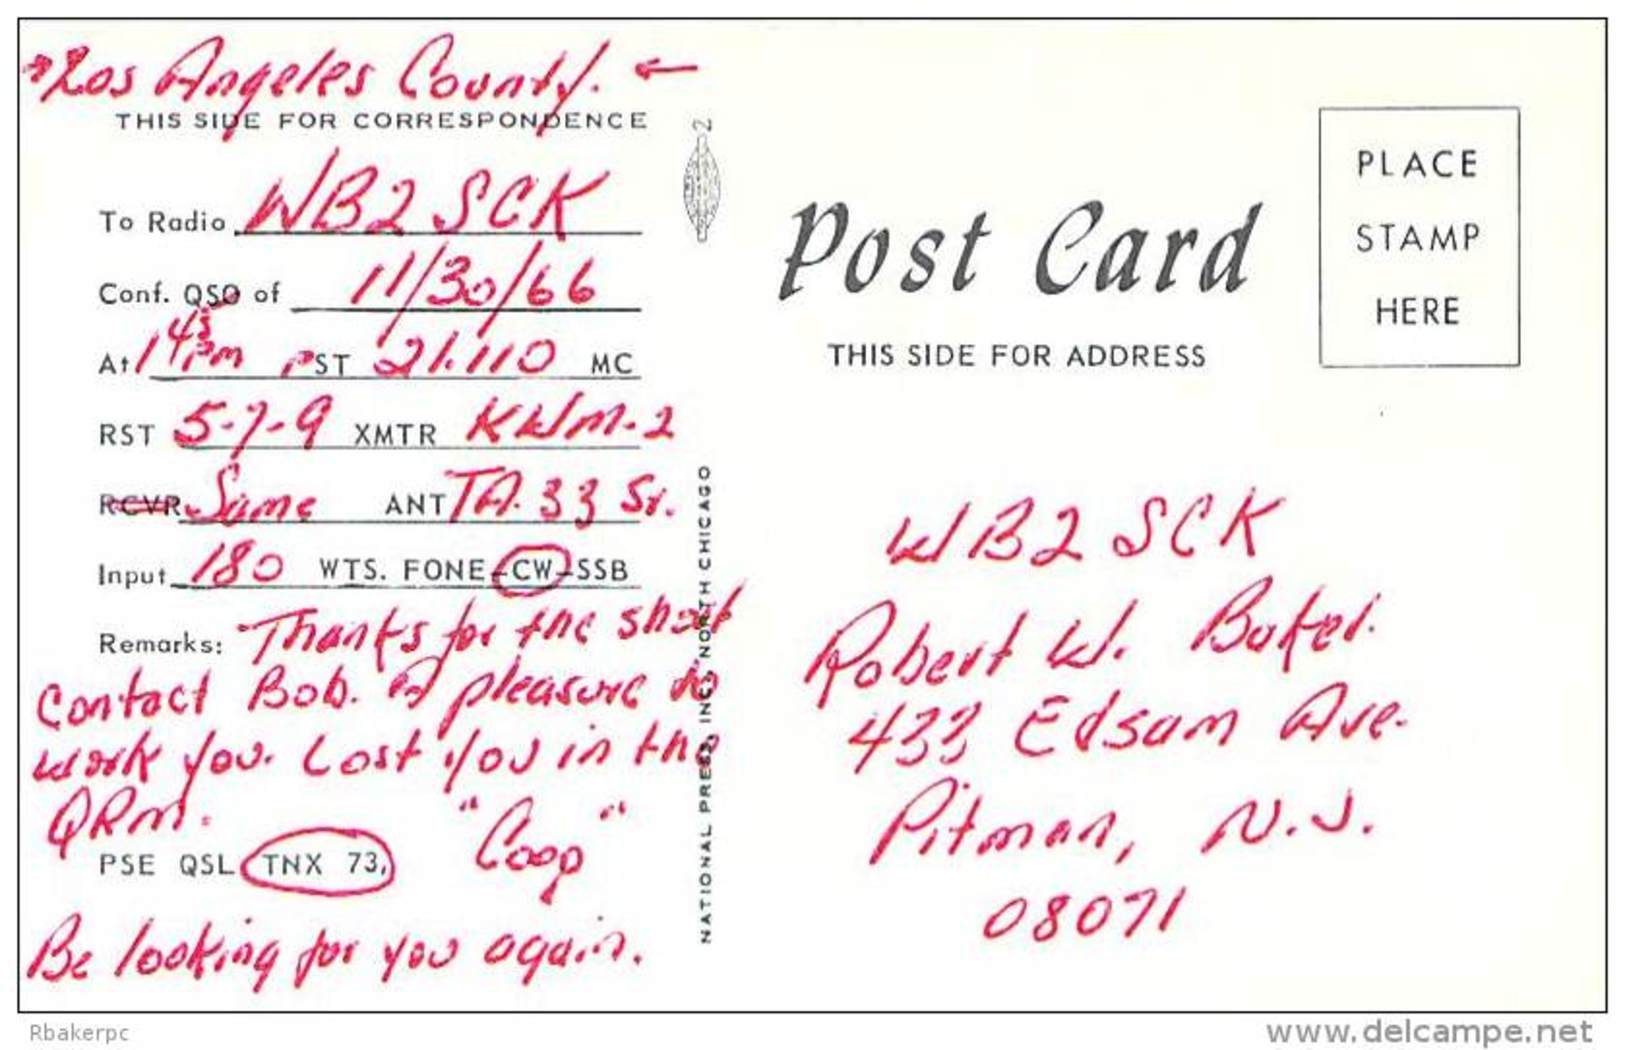 →Los Angeles County. ←
THIS SIDE FOR CORRESPONDENCE
To Radio WB2SCK
Conf. QSO of 11/30/66
At 1 45 Pm PST 21.110 MC
RST 5-7-9 XMTR KWM-2
RCVR Same ANT TA. 33 Sr.
Input 180 WTS. FONE-CW-SSB
Remarks: Thanks for the short
contact Bob. A pleasure to
work you. Lost you in the
QRM.
"Coop"
PSE QSL TNX 73,
Be looking for you again.
2
NATIONAL PRESS, INC., NORTH CHICAGO
Post Card
THIS SIDE FOR ADDRESS
PLACE
STAMP
HERE
WB2SCK
Robert W. Baker.
433 Edsam Ave.
Pitman, N.J.
08071
Rbakerpc
www.delcampe.net